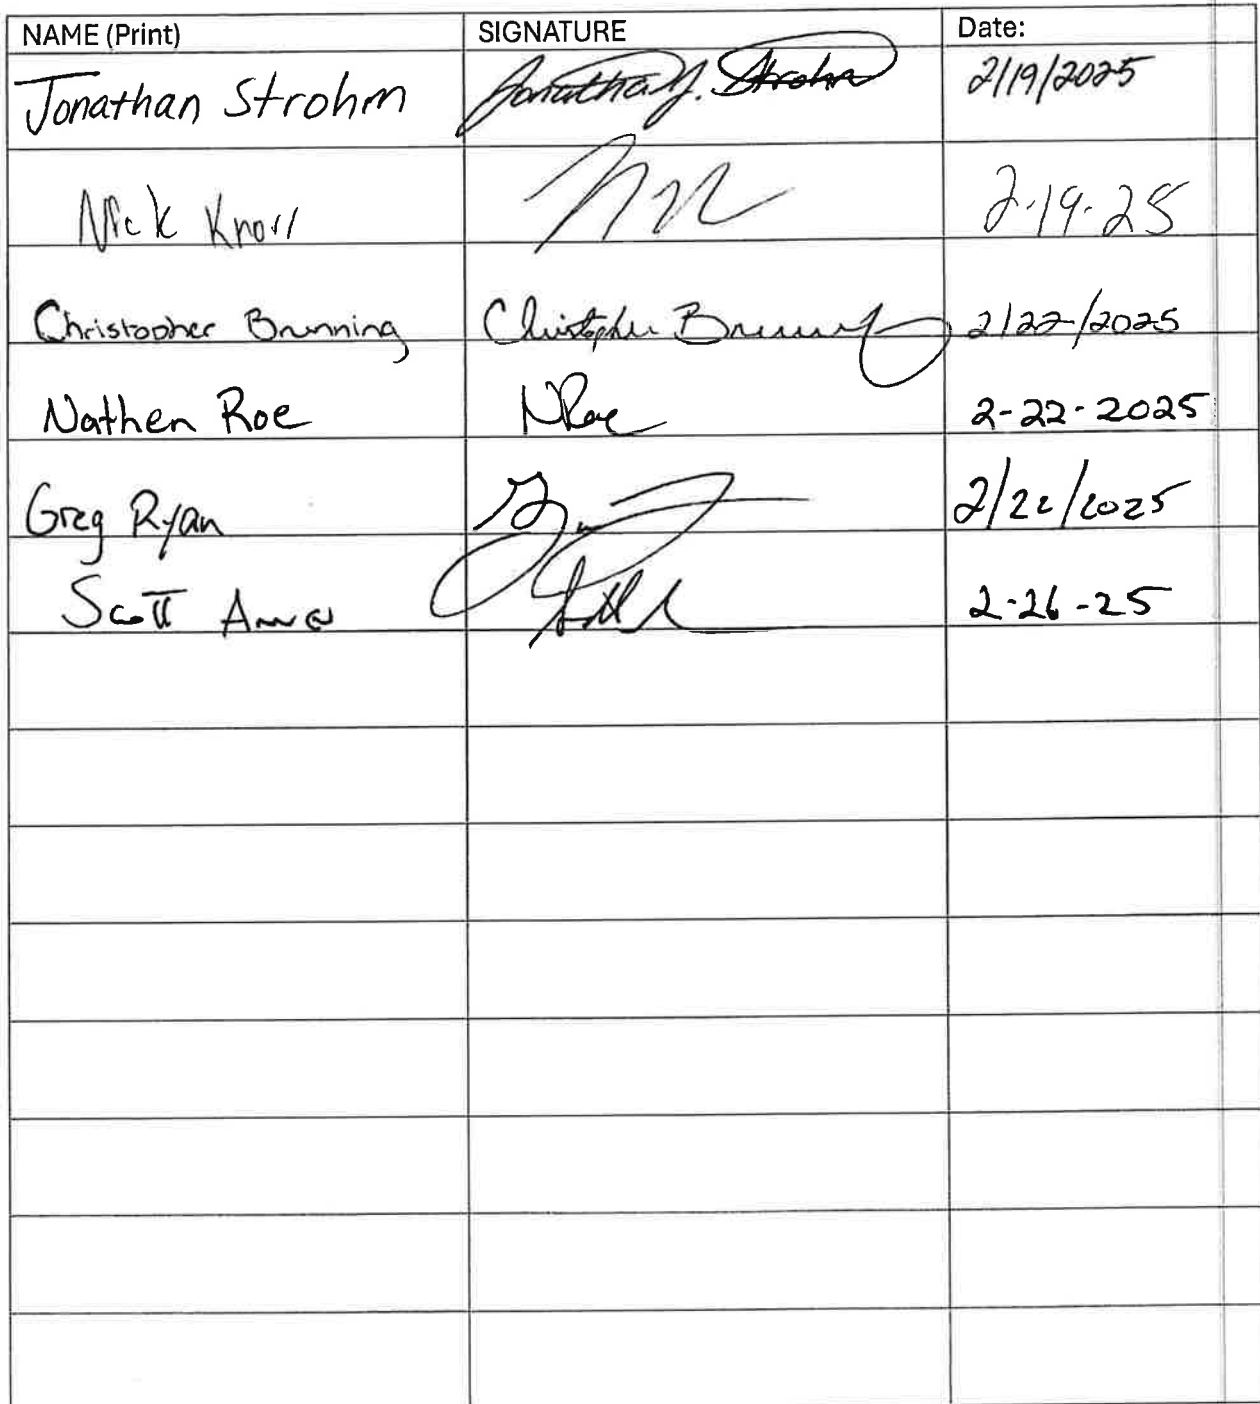 NAME (Print) SIGNATURE Date:
Jonathan Strohm Jonathan J. Strohm 2/19/2025
Nick Knorr 2-19-25
Christopher Brunning Christopher Brunning 2/22/2025
Nathen Roe NRoe 2-22-2025
Greg Ryan 2/22/2025
Scott 2-26-25